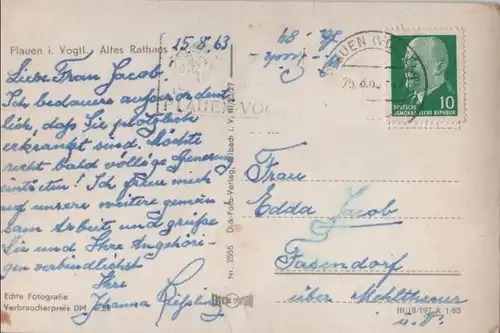 Plauen i. Vogtl. Altes Rathaus
25.8.63
Liebe Frau Jacob!
Ich bedaure außerordent-
lich, daß Sie plötzlich
erkrankt sind. Möchte
recht bald völlige Genesung
eintreten! Ich freue mich
auf unsere weitere gemein-
sam Arbeit und grüße
Sie und Ihre Angehöri-
gen verbindlichst
Ihre
Johanna Kießling
Echte Fotografie
Verbraucherpreis DM
PLAUEN VOG
Nr. 2555 Dick-Foto-Verlag, Erlbach i. V.
PLAUEN (VO
DEUTSCHE
DEMOKRATISCHE REPUBLIK
10
Frau
Edda Jacob
Fasendorf
über Mehltheuer
i. V.
III/18/197 R 1/63